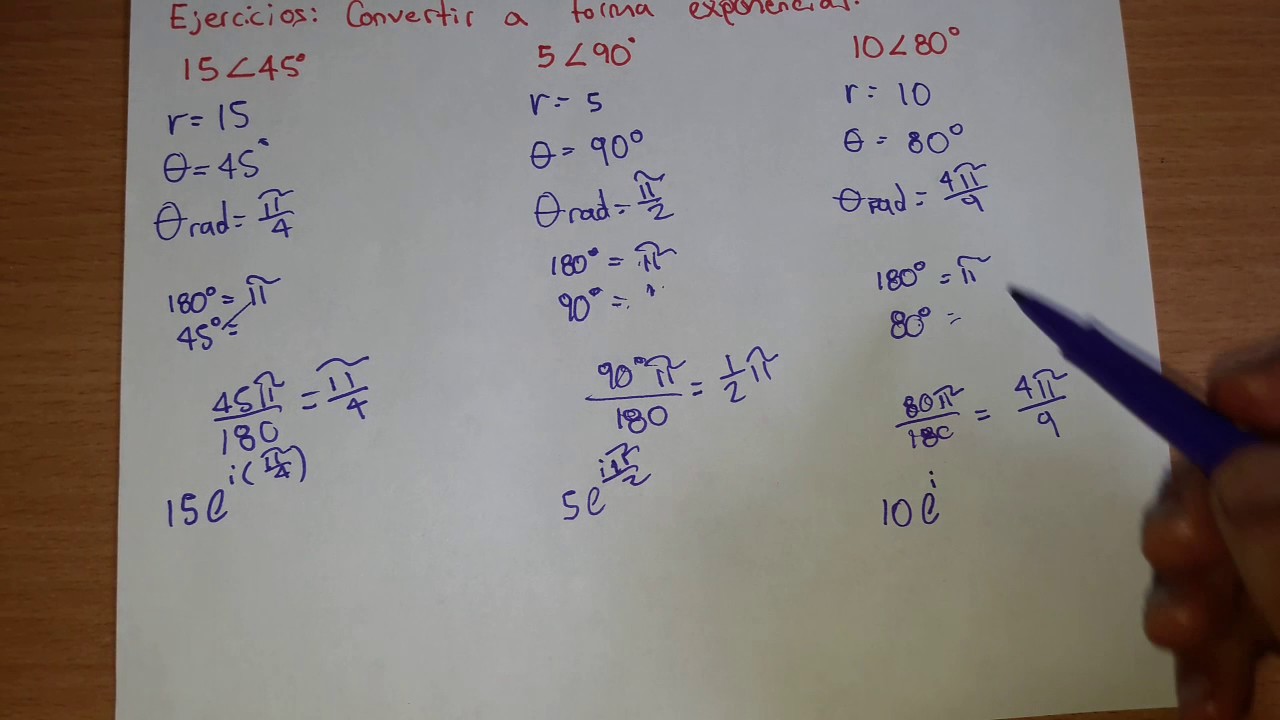 Ejercicios: Convertir a forma exponencial.
15∠45°
r=15
θ=45°
θrad=π/4
180°=π
45°=
45π/180=π/4
15e^i(π/4)
5∠90°
r=5
θ=90°
θrad=π/2
180°=π
90°=
90°π/180=1/2π
5e^iπ/2
10∠80°
r=10
θ=80°
θrad=4π/9
180°=π
80°=
80π/180=4π/9
10e^i